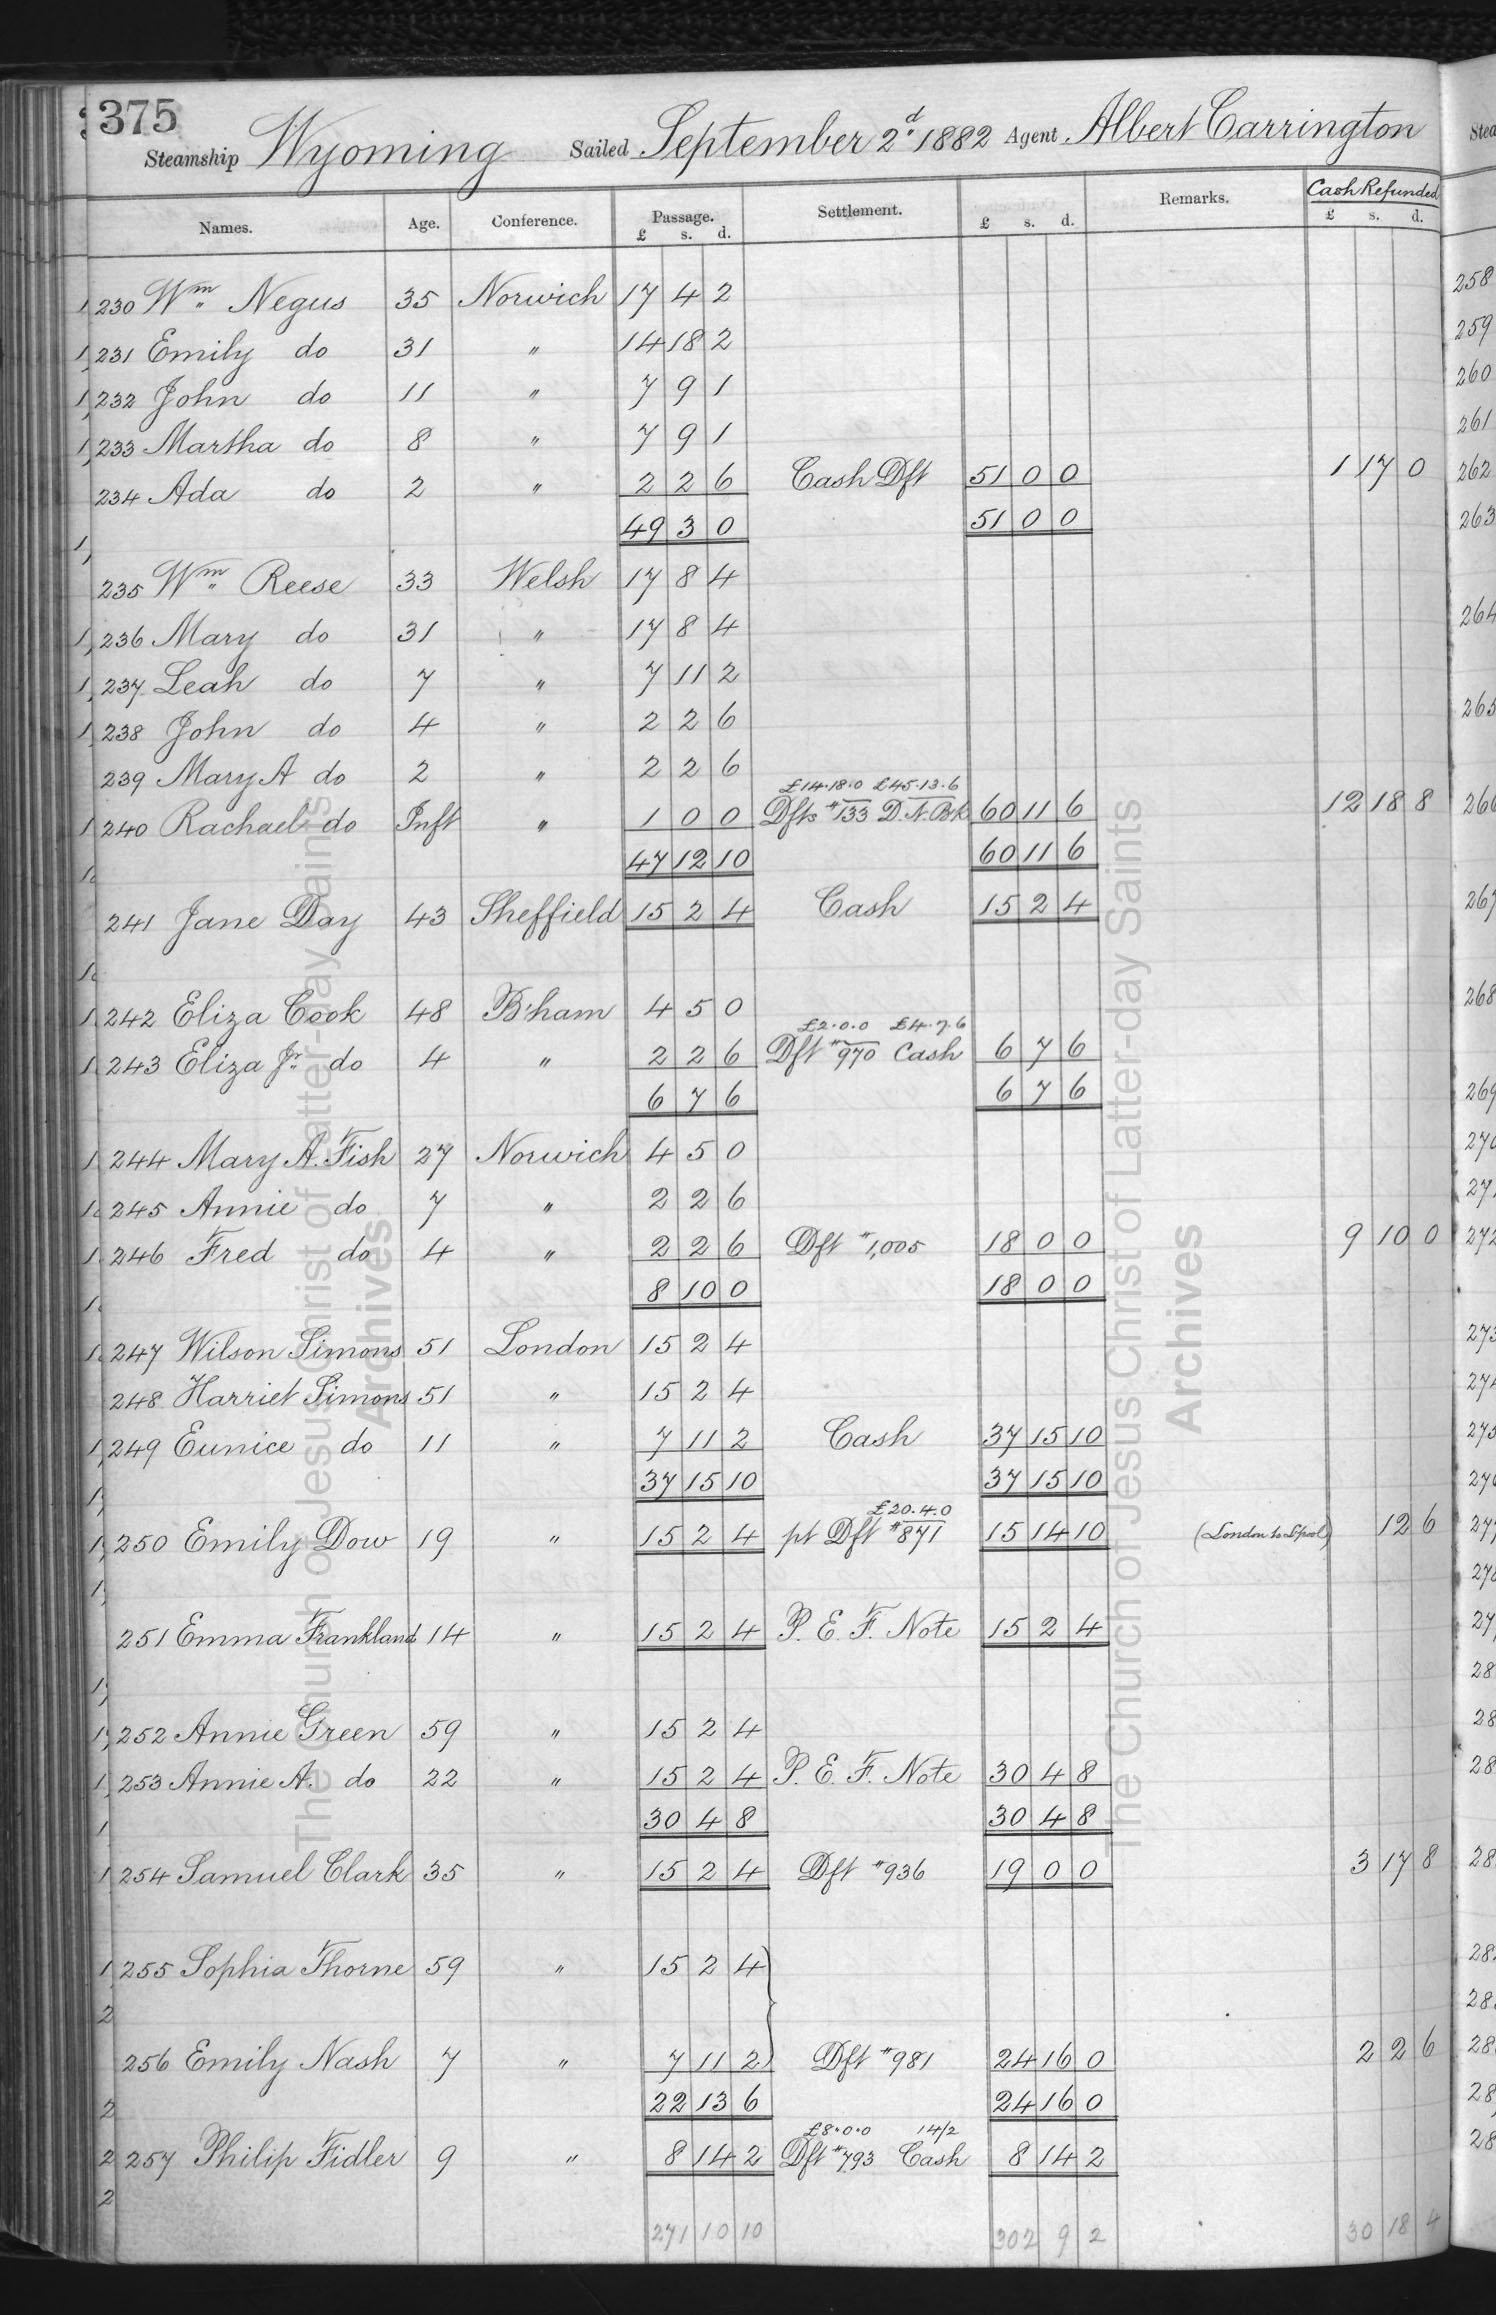 375
Steamship Wyoming Sailed September 2d. 1882 Agent Albert Carrington
Names. Age. Conference. Passage. Settlement. Remarks. Cash Refunded
£ s. d. £ s. d. £ s. d.
230 Wm. Negus 35 Norwich 17 4 2
231 Emily do 31 " 14 18 2
232 John do 11 " 7 9 1
233 Martha do 8 " 7 9 1
234 Ada do 2 " 2 2 6 Cash Dft 51 0 0 1 17 0
49 3 0 51 0 0
235 Wm. Reese 33 Welsh 17 8 4
236 Mary do 31 " 17 8 4
237 Leah do 7 " 7 11 2
238 John do 4 " 2 2 6
239 Mary A do 2 " 2 2 6
£14.18.0 £45.13.6
240 Rachael do Inft " 1 0 0 Dfts #133 D.N.Bk 60 11 6 12 18 8
47 12 10 60 11 6
241 Jane Day 43 Sheffield 15 2 4 Cash 15 2 4
242 Eliza Cook 48 B'ham 4 5 0
£2.0.0 £4.7.6
243 Eliza Jr. do 4 " 2 2 6 Dft #970 Cash 6 7 6
6 7 6 6 7 6
244 Mary A. Fish 27 Norwich 4 5 0
245 Annie do 7 " 2 2 6
246 Fred do 4 " 2 2 6 Dft #1,005 18 0 0 9 10 0
8 10 0 18 0 0
247 Wilson Simons 51 London 15 2 4
248 Harriet Simons 51 " 15 2 4
249 Eunice do 11 " 7 11 2 Cash 37 15 10
37 15 10 37 15 10
£20.4.0
250 Emily Dow 19 " 15 2 4 pt Dft #871 15 14 10 (London to L'pool) 12 6
251 Emma Frankland 14 " 15 2 4 P. E. F. Note 15 2 4
252 Annie Green 59 " 15 2 4
253 Annie A. do 22 " 15 2 4 P. E. F. Note 30 4 8
30 4 8 30 4 8
254 Samuel Clark 35 " 15 2 4 Dft #936 19 0 0 3 17 8
255 Sophia Thorne 59 " 15 2 4
256 Emily Nash 7 " 7 11 2 Dft #981 24 16 0 2 2 6
22 13 6 24 16 0
£8.0.0 14/2
257 Philip Fidler 9 " 8 14 2 Dft #793 Cash 8 14 2
271 10 10 302 9 2 30 18 4
The Church of Jesus Christ of Latter-day Saints
Archives
The Church of Jesus Christ of Latter-day Saints
Archives
Stea
258
259
260
261
262
263
264
265
266
267
268
269
270
271
272
273
274
275
276
277
278